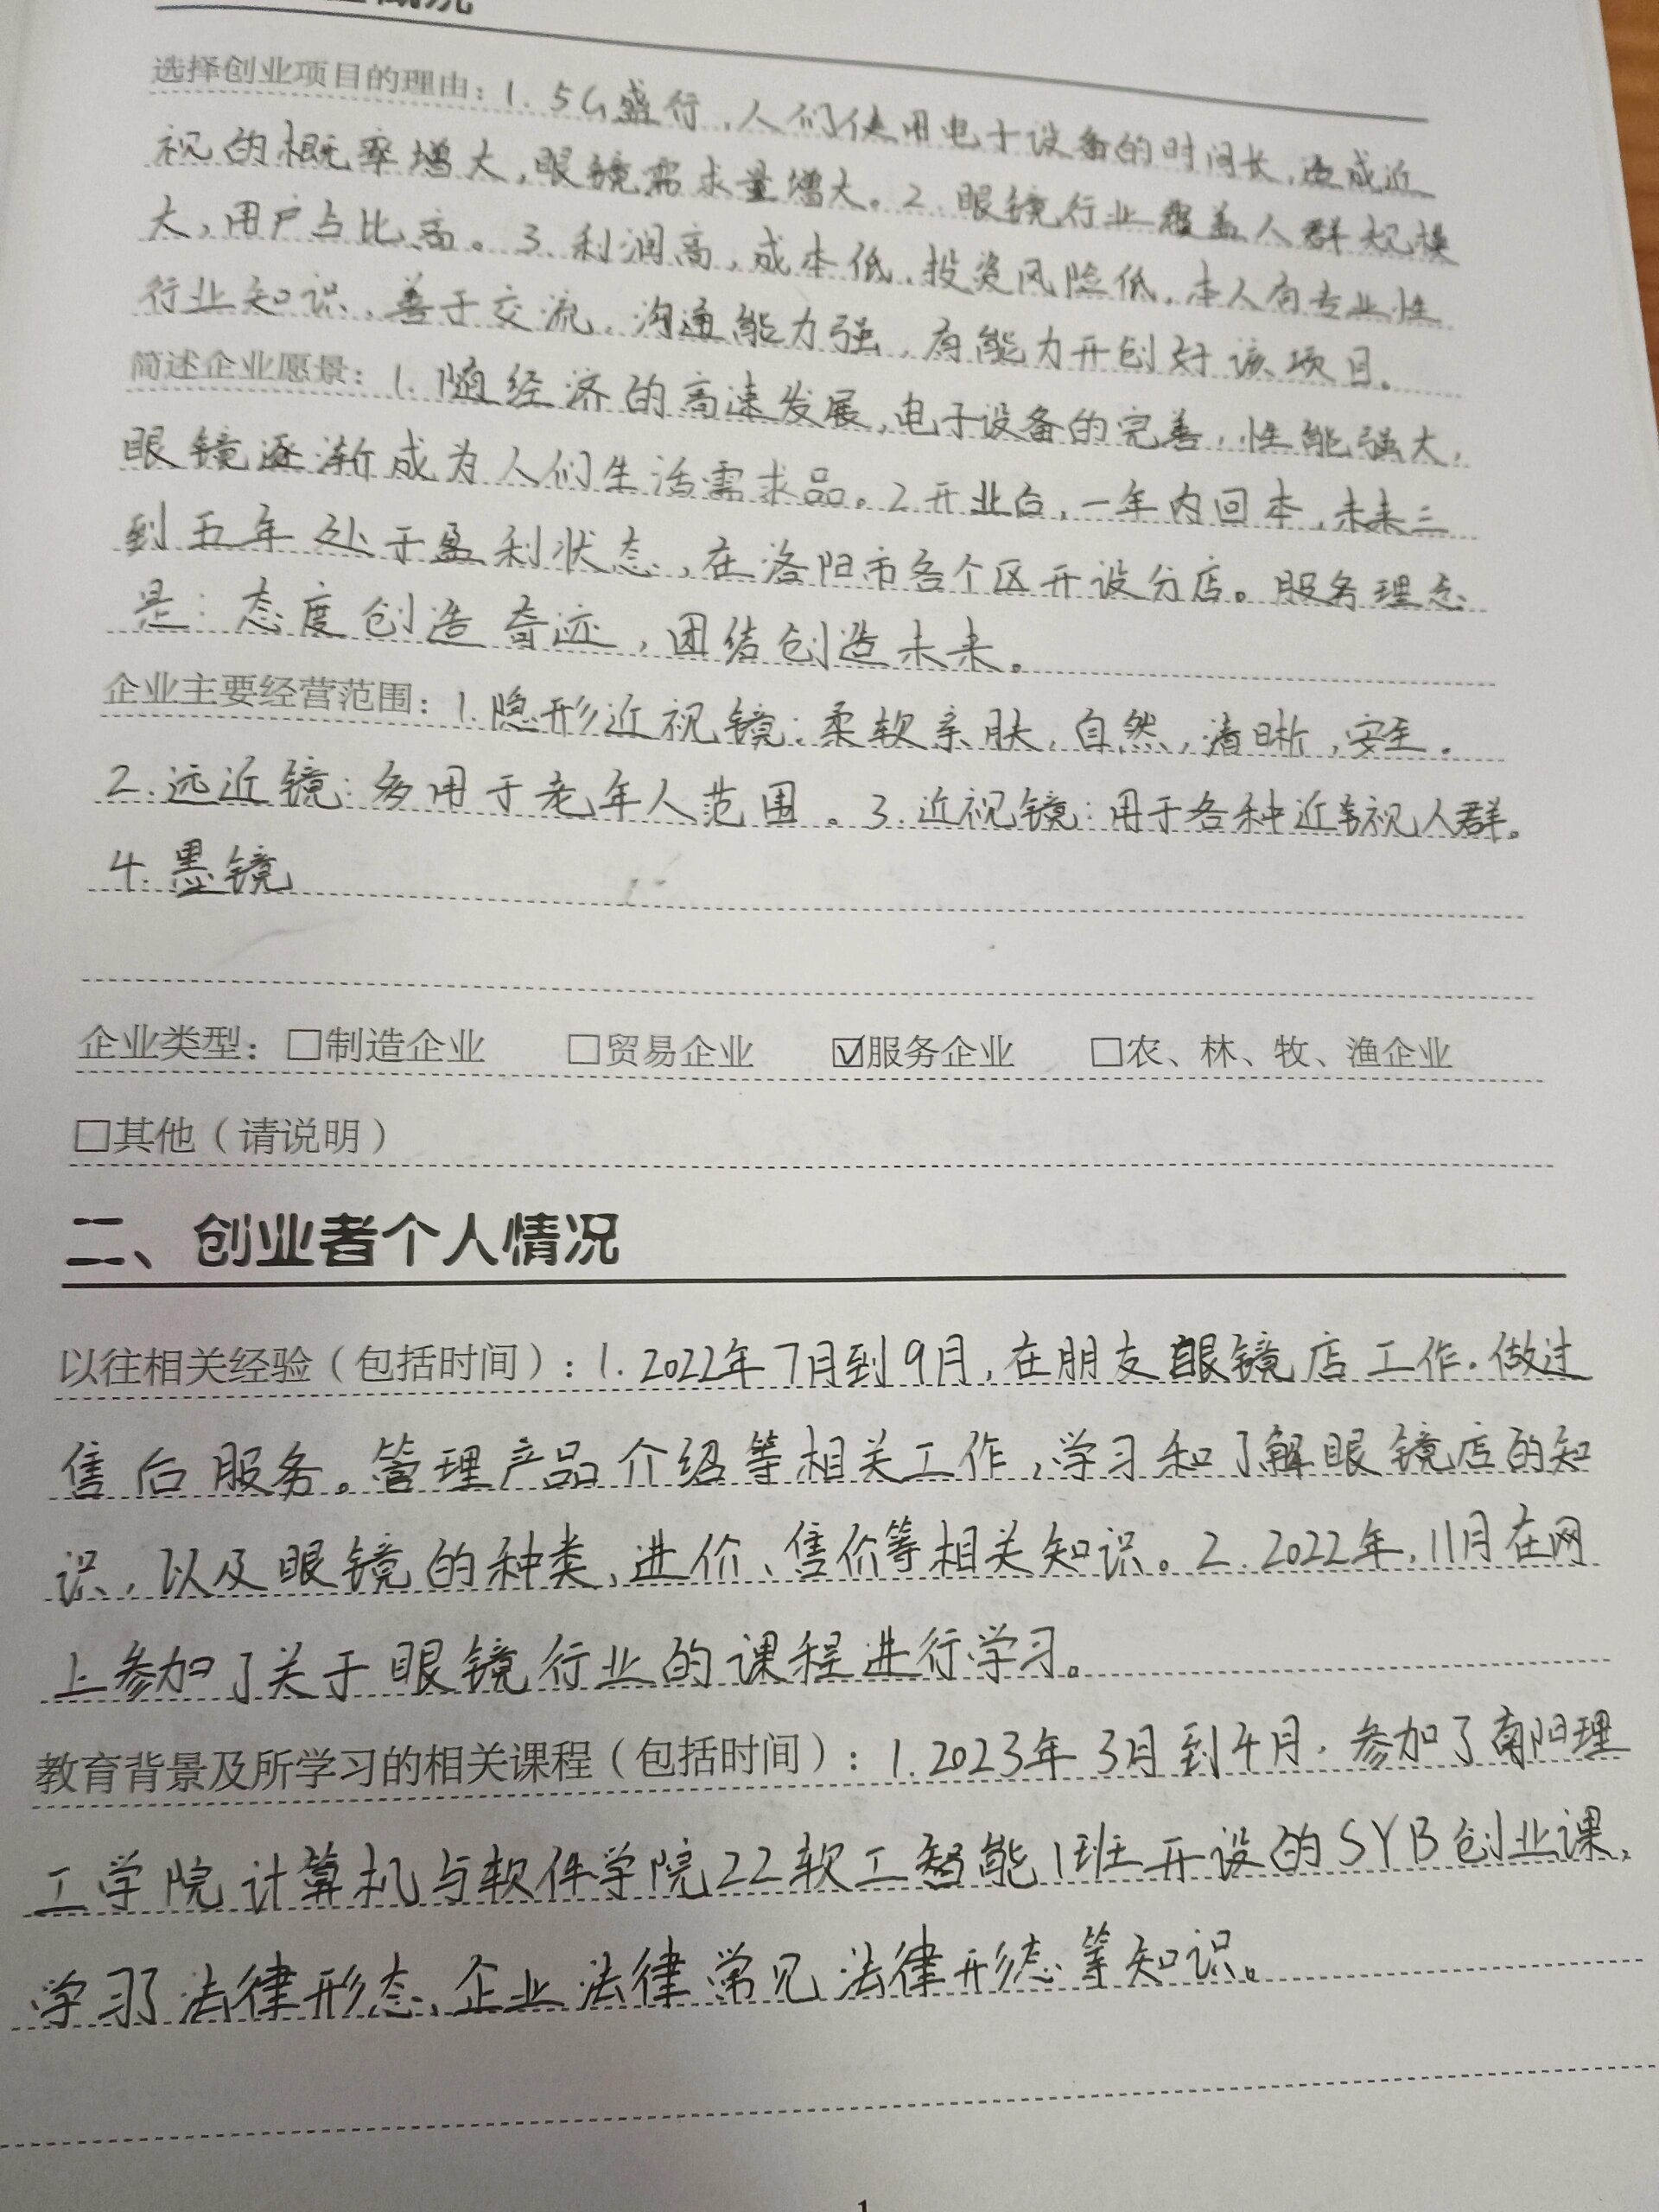 选择创业项目的理由：1. 5G盛行，人们使用电子设备的时间长，造成近
视的概率增大，眼镜需求量增大。2. 眼镜行业覆盖人群规模
大，用户占比高。3. 利润高，成本低，投资风险低，本人有专业性
行业知识，善于交流，沟通能力强，有能力开创好该项目。
简述企业愿景：1. 随经济的高速发展，电子设备的完善，性能强大，
眼镜逐渐成为人们生活需求品。2 开业后，一年内回本，未来三
到五年处于盈利状态，在洛阳市各个区开设分店。服务理念
是：态度创造奇迹，团结创造未来。
企业主要经营范围：1. 隐形近视镜：柔软亲肤，自然，清晰，安全。
2. 远近镜：多用于老年人范围。3. 近视镜：用于各种近视人群。
4. 墨镜
企业类型：□制造企业 □贸易企业 ☑服务企业 □农、林、牧、渔企业
□其他（请说明）
二、创业者个人情况
以往相关经验（包括时间）：1. 2022年7月到9月，在朋友眼镜店工作。做过
售后服务。管理产品介绍等相关工作，学习和了解眼镜店的知
识，以及眼镜的种类、进价、售价等相关知识。2. 2022年，11月在网
上参加了关于眼镜行业的课程进行学习。
教育背景及所学习的相关课程（包括时间）：1. 2023年3月到4月，参加了南阳理
工学院计算机与软件学院22软工智能1班开设的SYB创业课，
学习了法律形态、企业法律常见法律形态等知识。
1